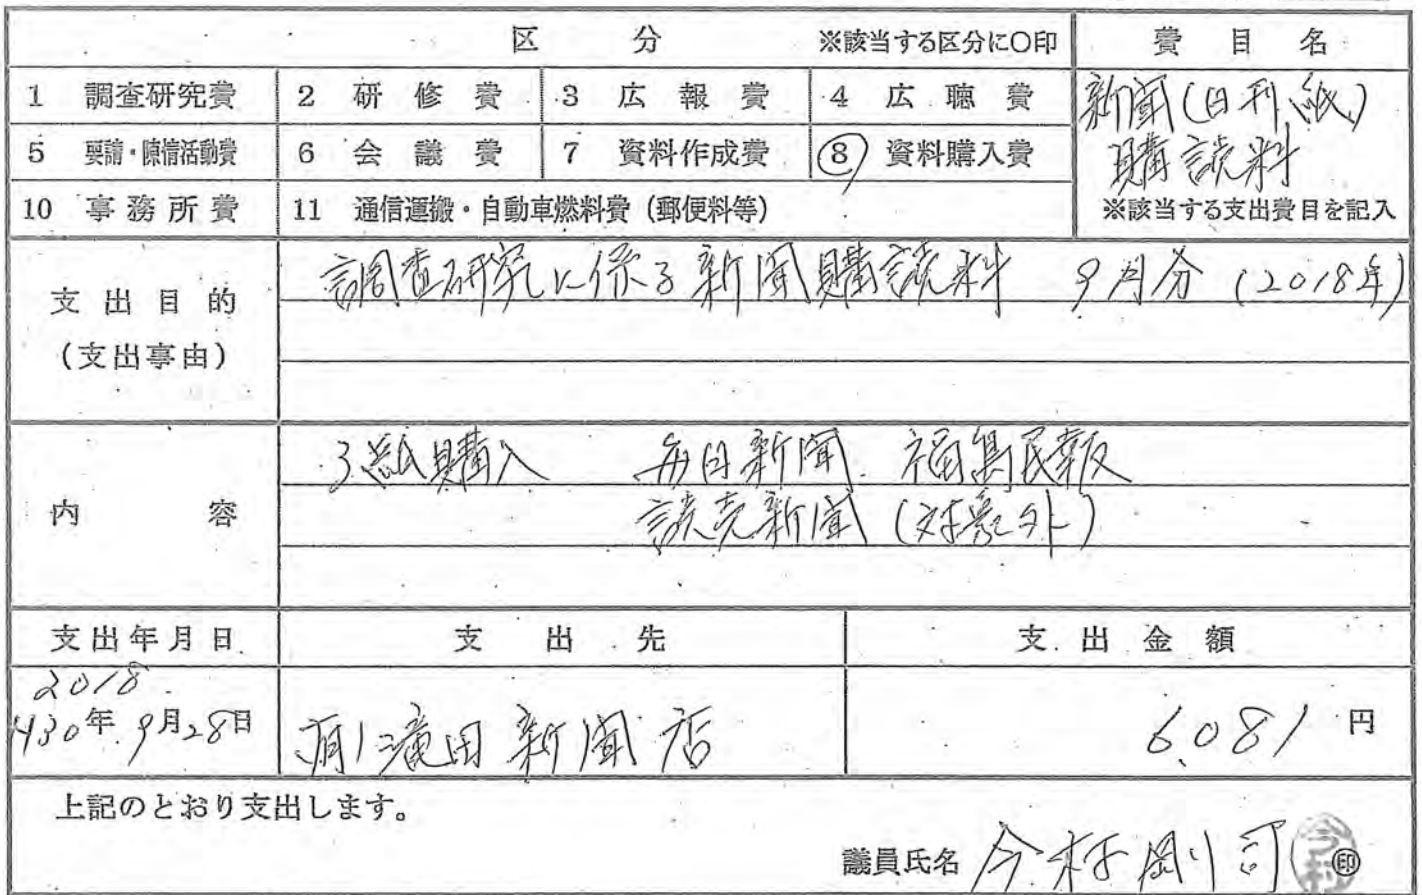 区 分 ※該当する区分に○印 費 目 名
1 調査研究費 2 研 修 費 3 広 報 費 4 広 聴 費
新聞(日刊紙)
5 要請・陳情活動費 6 会 議 費 7 資料作成費 8 資料購入費
購読料
10 事 務 所 費 11 通信運搬・自動車燃料費(郵便料等)
※該当する支出費目を記入
支 出 目 的
(支出事由)
調査研究に係る新聞購読料 9月分(2018年)
内 容
3紙購入 毎日新聞. 福島民報
読売新聞(対象外)
支出年月日 支 出 先 支 出 金 額
2018.
H30年 9月28日 (有)滝田新聞店 6081 円
上記のとおり支出します。
議員氏名 今村剛司 ㊞
今村